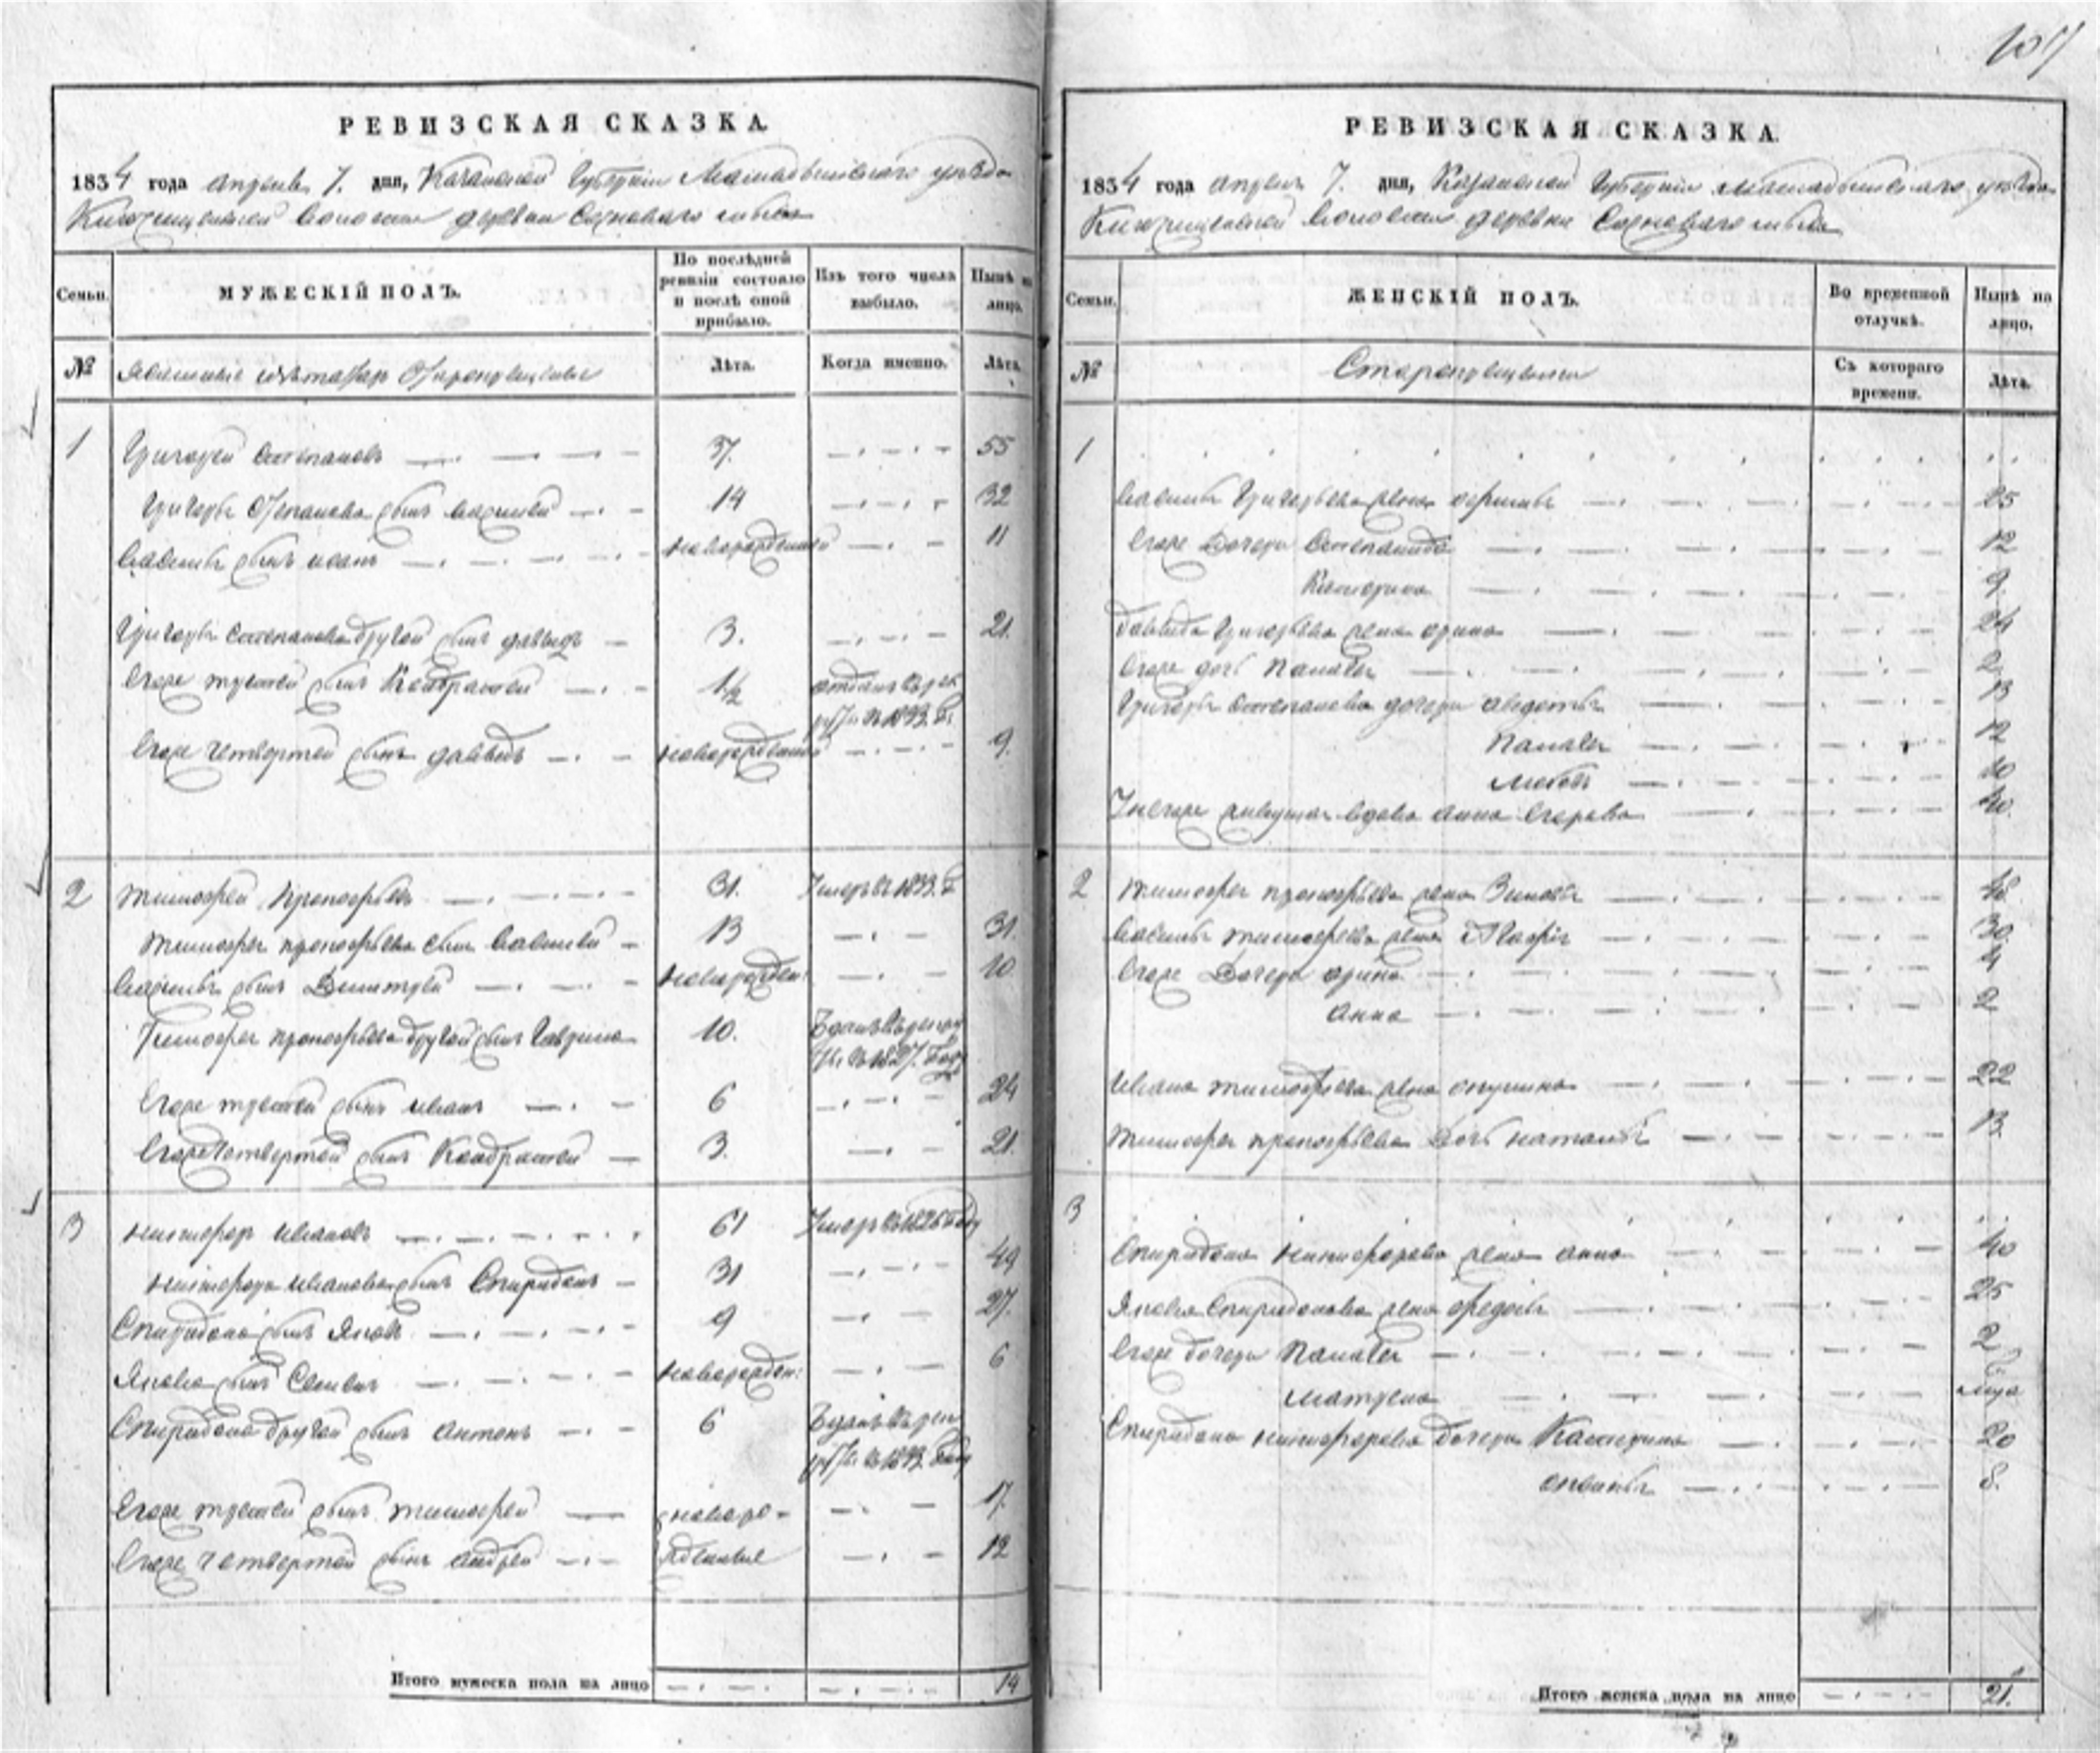 107
РЕВИЗСКАЯ СКАЗКА.
1834 года апреля 7. дня, Казанской Губернии Мамадышскаго уезда
волости деревни Сосноваго мыса
Семьи.
МУЖЕСКІЙ ПОЛЪ.
По послѣдней ревизіи состояло и послѣ оной прибыло.
Изъ того числа выбыло.
Нынѣ на лицо.
№
Лѣта.
Когда именно.
Лѣта.
1 Григорей Степановъ 37. 55
Григорья Степанова сынъ Василей 14 32
Василья сынъ новорожденной 11
Григорья Степанова другой сынъ давыдъ 3. 21.
Егоже третей сынъ Кондратей 1½ отданъ въ рек
руты въ 1833. г.
Егоже четвертой сынъ давыдъ новорожденной 9.
2 тимофей Прокофьевъ 31. Умеръ въ 1833. г
тимофея прокофьева сынъ Василей 13 31.
Василья сынъ Дмитрей новорожден: 10
Тимофея прокофьева другой сынъ Гаврила 10. Зданъ въ рекру
ты въ 1827. году
Егоже третей сынъ иванъ 6 24
Егоже четвертой сынъ Кондратей 3. 21.
3 никифоръ ивановъ 61 Умеръ въ 1826 году
никифора иванова сынъ Спиридонъ 31 49
Спиридона сынъ Яковъ 9 27.
Якова сынъ новорожден: 6
Спиридона другой сынъ антонъ 6 Зданъ въ рек
руты въ 1833. году
Егоже третей сынъ тимофей новоро- 17.
Егоже четвертой сынъ андрей жденные 12
Итого мужеска пола на лицо 14
РЕВИЗСКАЯ СКАЗКА.
1834 года апреля 7. дня, Казанской Губернии Мамадышскаго уезда
волости деревни Сосноваго мыса
Семьи.
ЖЕНСКІЙ ПОЛЪ.
Во временной отлучкѣ.
Нынѣ на лицо.
№
Съ котораго времени.
Лѣта.
1
Василья Григорьева жена 25
Егоже Дочери Степанида 12
Катерина 9.
Давыда Григорьева жена арина 24
Егоже дочь Палагея 2.
Григорья Степанова дочери авдотья 13
Палагея 12
любовь 10
У негоже живущая вдова анна Егорова 40.
2 тимофея прокофьева жена Зиновья 48.
Василья тимофеева жена 30.
Егоже Дочери арина 4
анна 2
ивана тимофеева жена 22
тимофея прокофьева Дочь наталья 13.
3
Спиридона никифорова жена анна 40
Якова Спиридонова жена федосья 25
Егоже дочери Палагея 2
матрена
Спиридона никифорова дочери Катерина 20
8.
Итого женска пола на лицо 21.